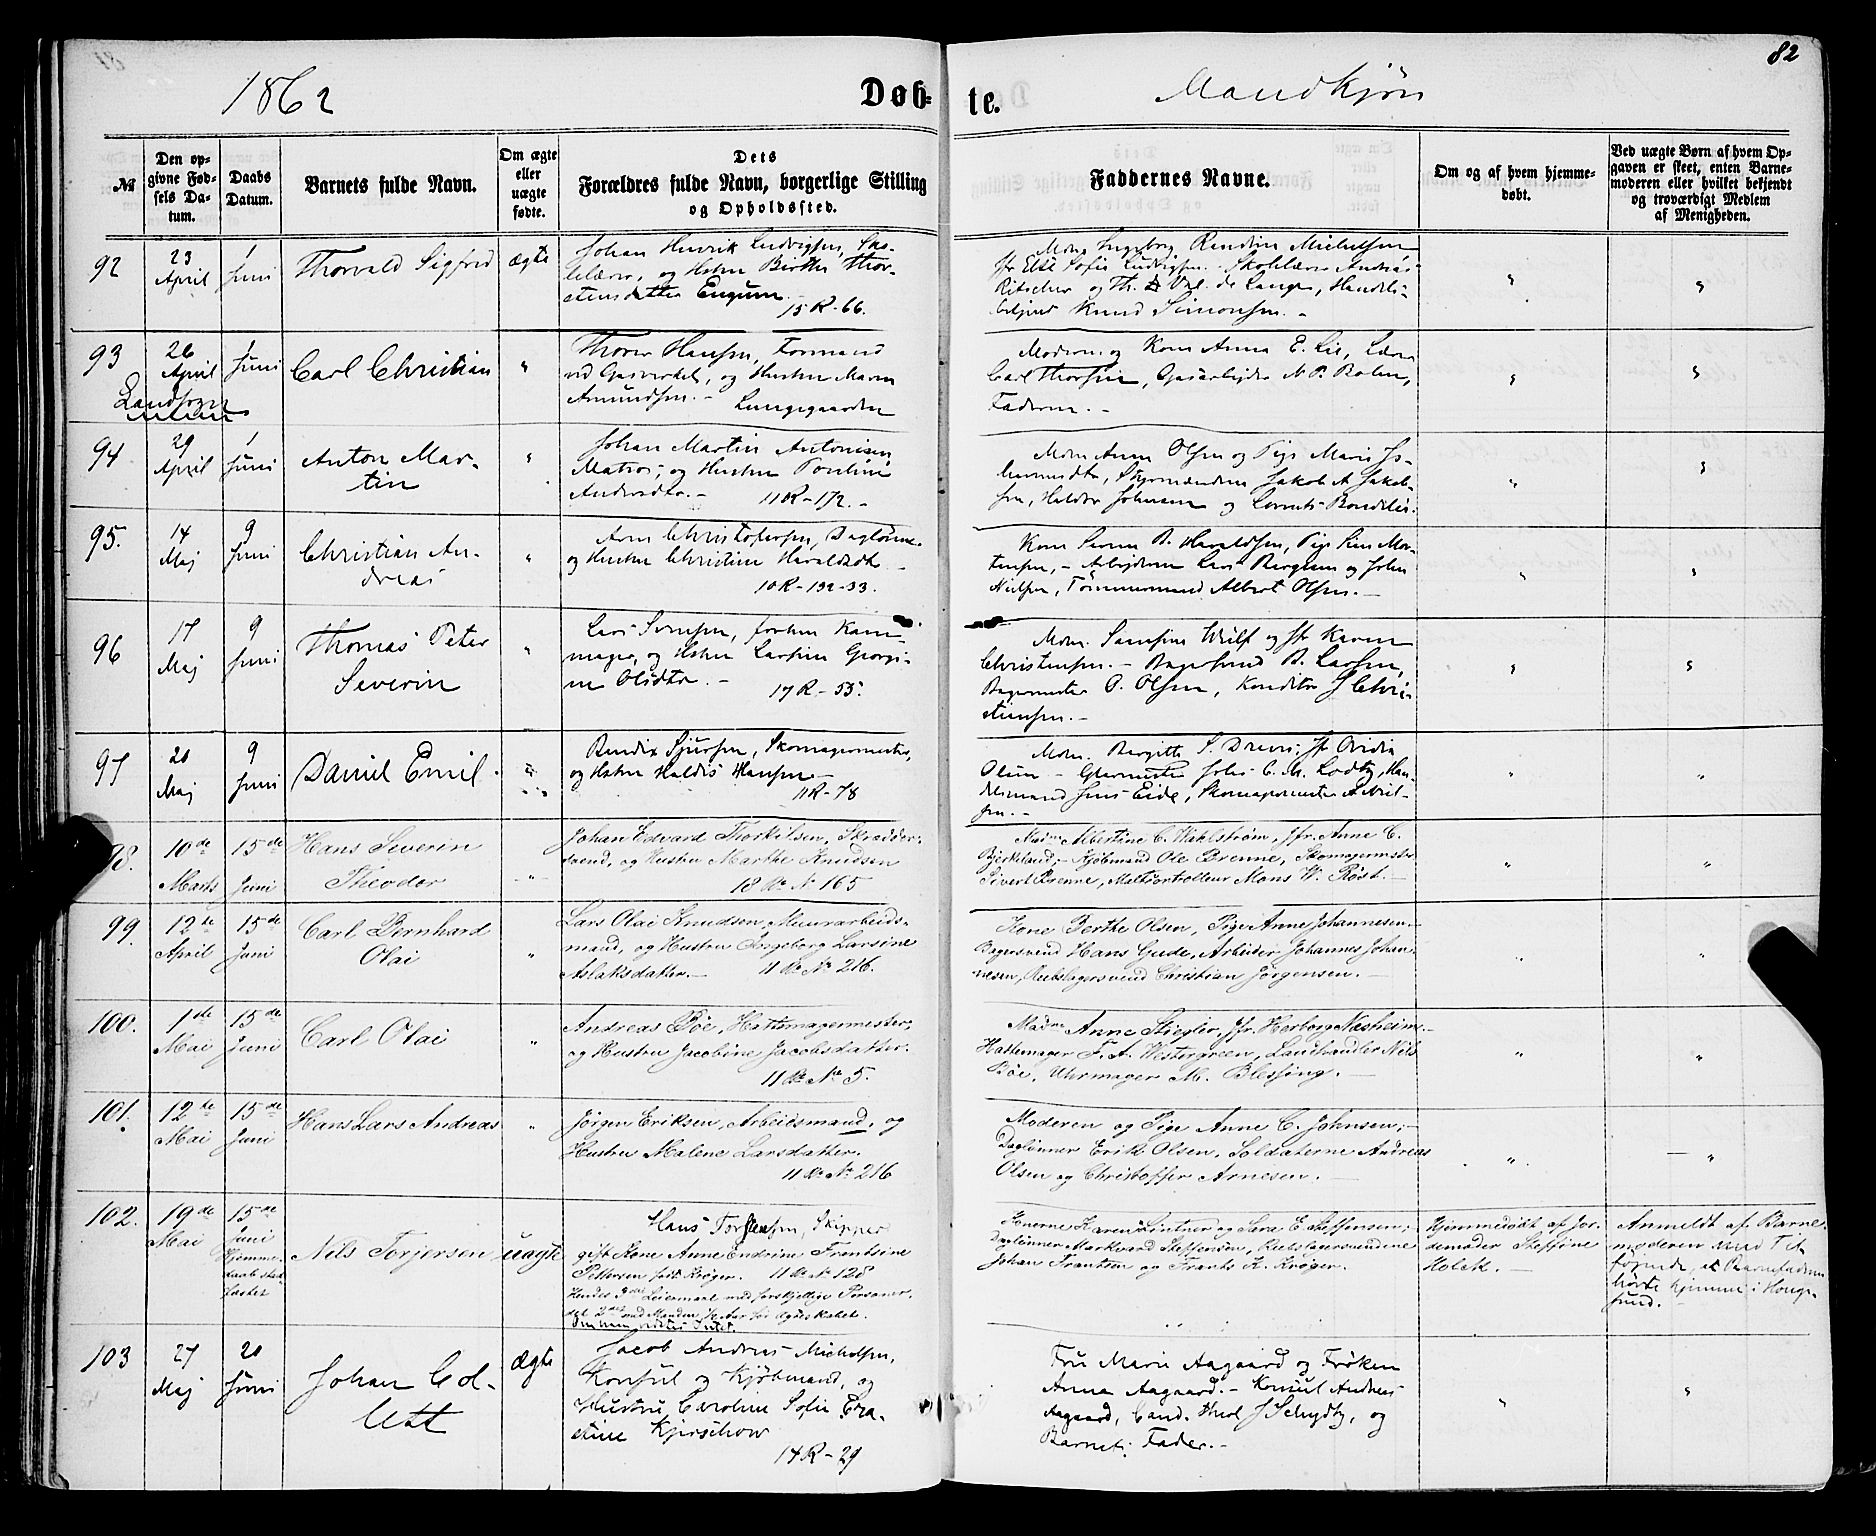 82
1862
Døb-
te.
Mandkjøn
№
Den op-
givne Fød-
sels Da-
tum.
Daabs
Datum.
Barnets fulde Navn.
Om ægte
eller
uægte
fødte.
Dets
Forældres fulde Navn, borgerlige Stilling
og Opholdssted.
Faddernes Navne.
Om og af hvem hjemme-
døbt.
Ved uægte Børn af hvem Op-
gaven er skeet, enten Barne-
moderen eller hvilket bekjendt
og troværdigt Medlem
af Menigheden.
92
23
April
1
Juni
Thorvald Sigfrid
ægte
Johan Henrik Ludvigsen, Sko-
lelærer, og Hstru Birthe Thor-
stensdatter Engum
15 R - 66.
Mdm Ingeborg Michelsen
Jfr Else Sofie Ludvigsen. Skolelærer Andreas
Ritscher og Th. Val. de Lange, Handels-
betjent Knud Simonsen. -
93
26
April
1
Juni
Landsogn
Carl Christian
"
Thorer Hansen, Formand
ved Gasverket, og Hustru Maren
Amundsen. -
Lungegaarden
Moderen og Kone Anna E. Lie, Lærer
Carl Thorsen, Gasarbejder N. P. Bolen,
Faderen. -
94
29
April
1
Juni
Anton Mar-
tin
"
Johan Martin Antonisen
Matros, og Hustru Pouline
Andersdtr. -
11 R - 172. -
Mdm Anna Olsen og Pige Marie Jo-
hannesdtr, Styrmændene Jakob A Jakob-
sen, Haldor Johnsen og Lorents Bendiksen.
95.
14
Maj
9
Juni
Christian An-
dreas
"
Arne Christofersen, Daglønner
og Hustru Christine Haraldsdtr -
10 R - 132-33.
Kone Seren B. Haraldsen, Pige Sine Mor-
tensen, - Arbejderne Lars Bergesen og John
Nielsen, Tømmermand Albert Olsen. -
96
17
Maj
9
Juni
Thomas Peter
Severin
"
Lars Svensen, forhen Kam-
mager, og Hstru Larsine Georgi-
ne Olsdtr. -
17 R - 55.
Mdm. Samsine Wulf og Jfr Karen
Christensen. - Bagersvend B. Larsen,
Bagermester O. Olsen, Konditor J Chri-
stensen. -
97
20
Maj
9
Juni
Daniel Emil.
Bendix Sjursen, Skomagermester,
og Hstru Haldis Hansen -
11 R - 78
Mdm. Bergitte S. Drews, Jfr Ovidia
Olsen - Glarmester Johs C. M. Lodby, Han-
delsmand Jens Eide, Skomagermester A Niel-
sen. -
98.
10de
Marts
15de
Juni
Hans Severin
Theodor
- " -
Johan Edvard Torkilsen, Skrædder-
svend, og Hustru Marthe Knudsen
18 R. № 165
Madme Albertine C. Wahlstrøm, Jfr. Anne C.
Bjerkelund, - Kjøbmand Ole Brenne, Skomagermster
Sivert Brenne, Maltcontrolleur Mons W. Røst. -
99.
12te
April
15de
Juni
Carl Bernhard
Olai
"
Lars Olai Knudsen, Muurarbeids-
mand, og Hustru Ingeborg Larsine
Aslaksdatter. -
11 R. № 216.
Kone Berthe Olsen, Pige Anne Johannesen. -
Bagersvend Hans Gude, Arbeider Johannes Johan-
nesen, Reebslagersvend Christian Jørgensen. -
100.
1de
Mai
15de
Juni
Carl Olai
"
Andreas Bøe, Hattemagermester,
og Hustru Jacobine Jacobsdatter.
11 R. № 5.
Madme Anne Stiegler, Jfr. Herborg Næsheim. -
Hattemager F. A. Westergreen, Landhandler Nils
Bøe, Uhrmager M. Blessing. -
101.
12te
Mai
15de
Juni
Hans Lars Andreas
"
Jørgen Eriksen, Arbeidsmand, og
Hustru Malene Larsdatter.
11 R. № 216
Moderen og Pige Anne C. Johnsen, -
Dagløner Erik Olsen, Soldaterne Andreas
Olsen og Christoffer Arnesen. -
102.
19de
Mai
15de
Juni
Hjemme-
daab stad-
fæstet
Nils Torjersen
uægte
Hans Torstensen, Skipper
gift Kone Anne Endrine Frantsine
Pettersen født Krøger. 11 R. № 128
Hendes 3die Leiermaal med forskjellige Personer,
det 2det med Manden ½ Aar før Ægteskabet.
Om ham vidstes Intet.
Konerne Karen Lintner og Sara E. Steffensen, -
Dagløner Markvard Steffensen, Reebslagersvendene
Johan Frantzen og Frants K. Krøger.
Hjemmedøbt af Jor-
demoder Steffine
Holck. -
Anmeldt af Barne-
moderen med Til-
føjende, at Barnefaderen
hørte hjemme i Houge-
sund. -
103
27
Maj
20
Juni
Johan Col-
lett
Ægte
Jacob Andreas Michelsen,
Konsul og Kjøbmand, og
Hustru Caroline Sofie Er-
stine Kjerschow
14 R - 29
Fru Marie Aagaard og Frøken
Anna Aagaard. - Konsul Andreas
Aagaard, Cand. theol J Schydtz, og
Barnets Fader. -